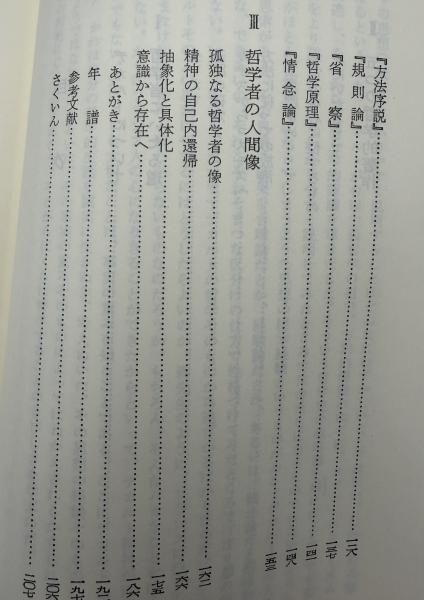 『方法序説』……一二八
『規則論』……一三七
『省察』……一四一
『哲学原理』……一四八
『情念論』……一五三
Ⅲ 哲学者の人間像
孤独なる哲学者の像……一六二
精神の自己内還帰……一六六
抽象化と具体化……一七五
意識から存在へ……一八六
あとがき……一九一
年譜……一九七
参考文献……二〇六
さくいん……二〇七